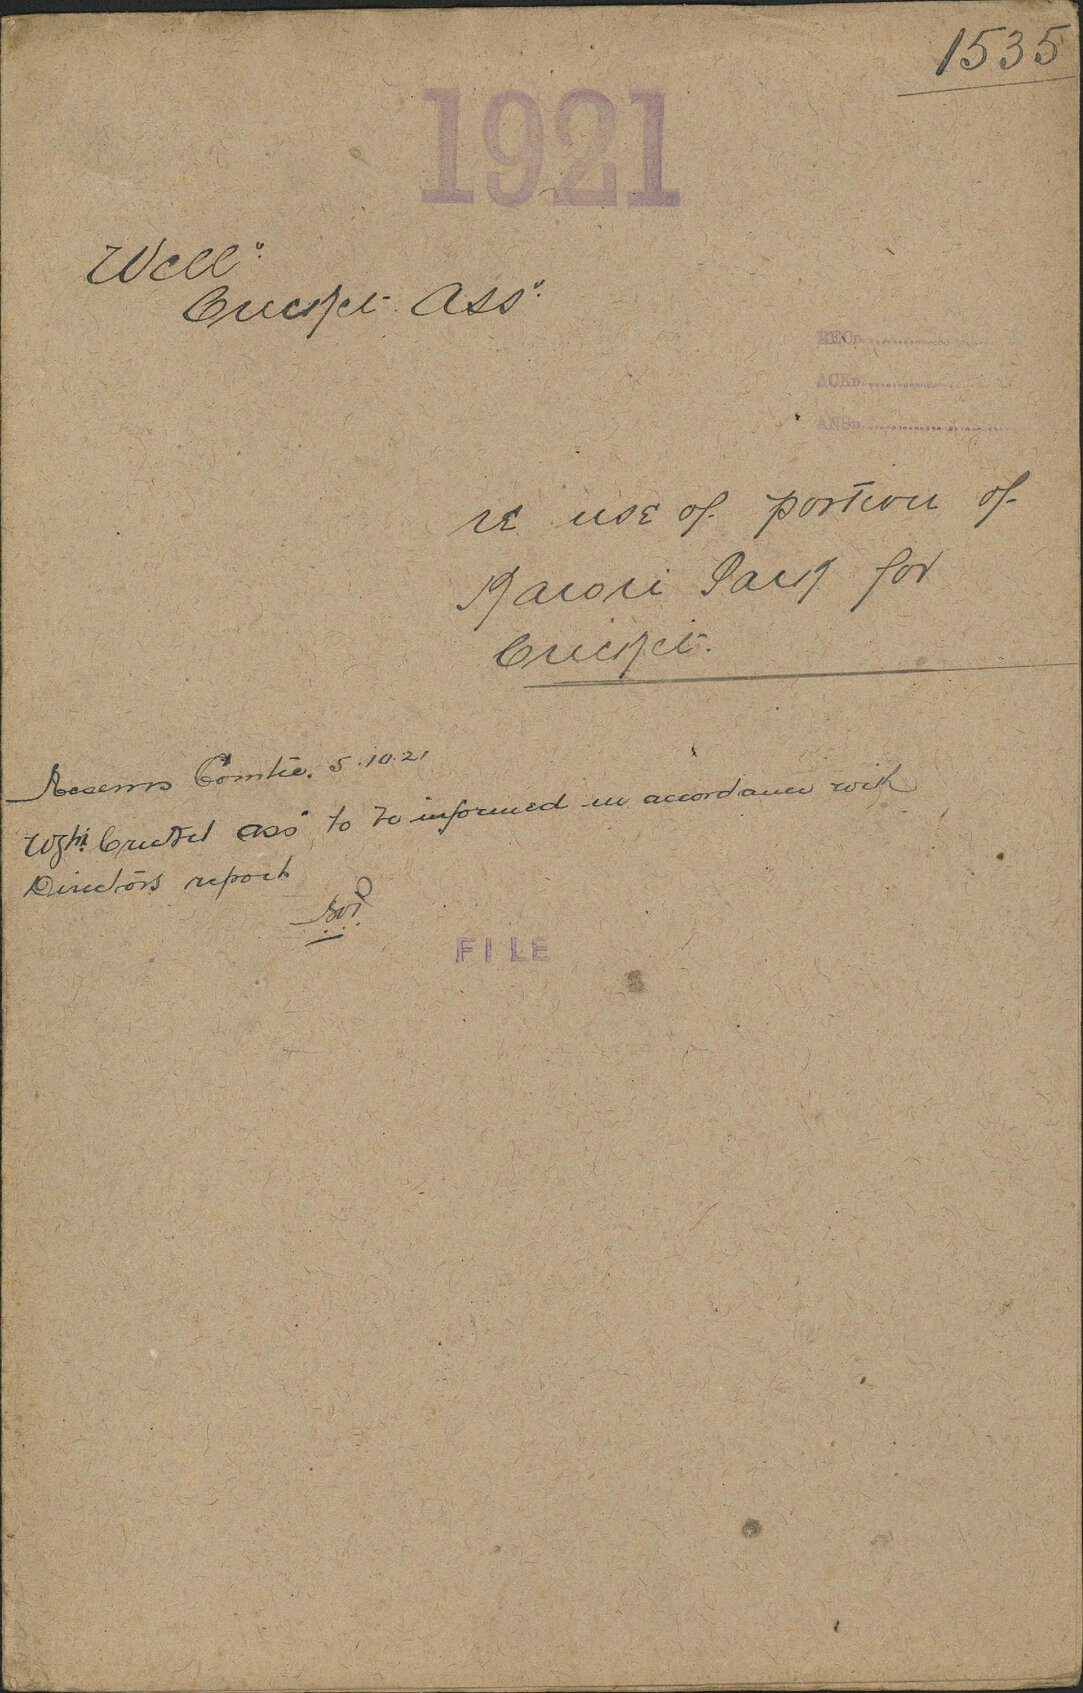 1535
1921
Wellⁿ.
Cricket Assⁿ.
RECD.
ACKD.
ANSD.
re use of portion of
Karori Park for
Cricket.
Reserves Comtee. 5.10.21
Wgtn Cricket Assn to be informed in accordance with
Directors report
FILE